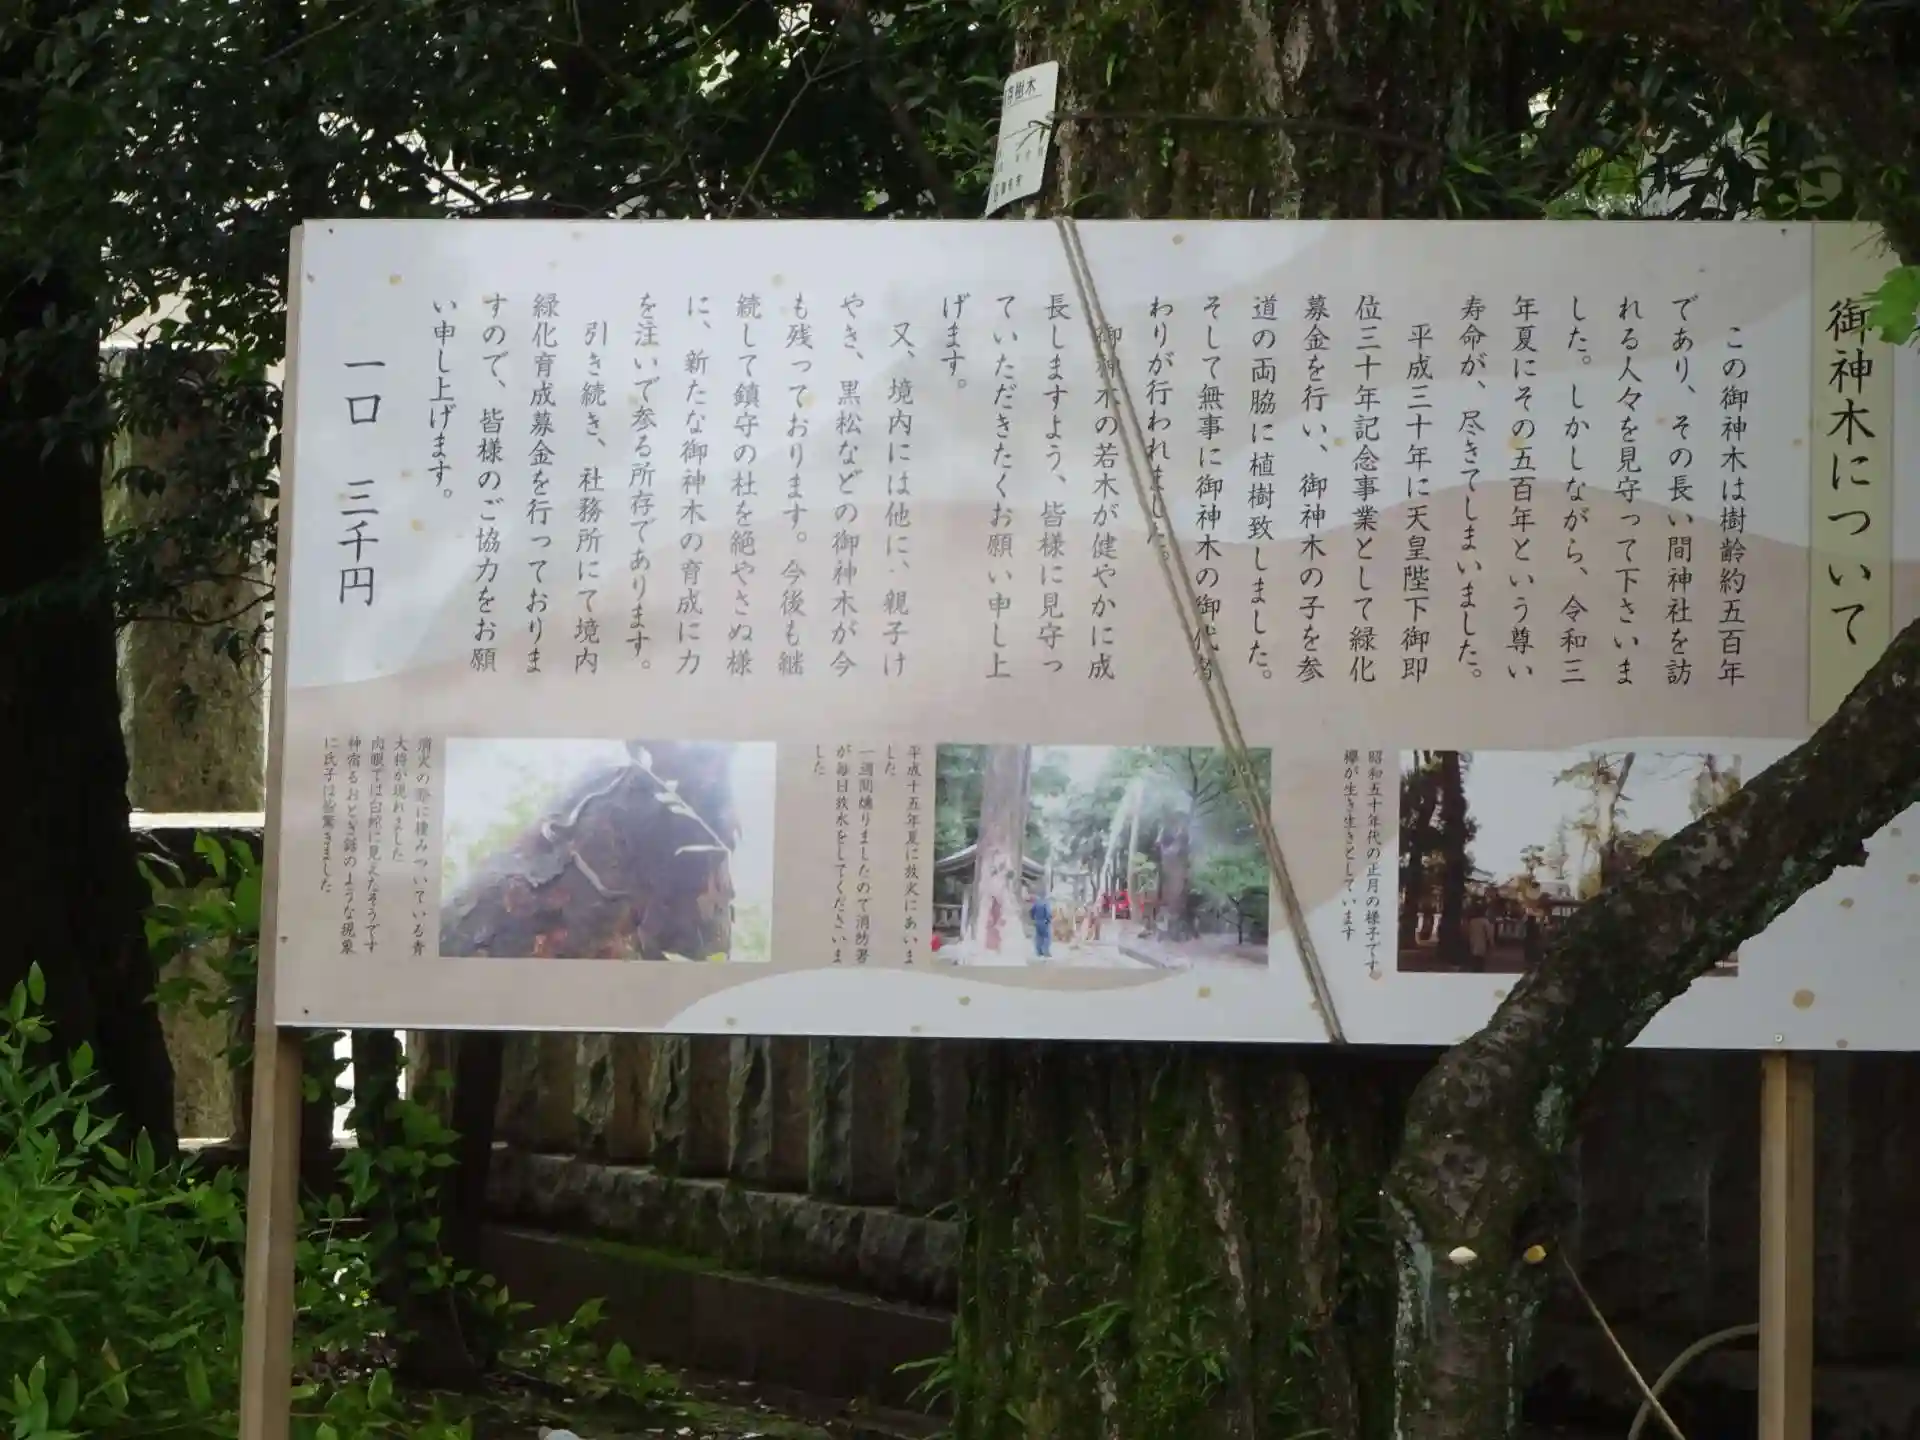 御神木について
この御神木は樹齢約五百年
であり、その長い間神社を訪
れる人々を見守って下さいま
した。しかしながら、令和三
年夏にその五百年という尊い
寿命が、尽きてしまいました。
平成三十年に天皇陛下御即
位三十年記念事業として緑化
募金を行い、御神木の子を参
道の両脇に植樹致しました。
そして無事に御神木の御代替
わりが行われました。
御神木の若木が健やかに成
長しますよう、皆様に見守っ
ていただきたくお願い申し上
げます。
又、境内には他に、親子け
やき、黒松などの御神木が今
も残っております。今後も継
続して鎮守の杜を絶やさぬ様
に、新たな御神木の育成に力
を注いで参る所存であります。
引き続き、社務所にて境内
緑化育成募金を行っておりま
すので、皆様のご協力をお願
い申し上げます。
一口 三千円
昭和五十年代の正月の様子です
欅が生き生きとしています
平成十五年夏に放火にあいま
した
一週間燻りましたので消防署
が毎日放水をしてくださいま
した
消火の際に棲みついている青
大将が現れました
肉眼では白蛇に見えたそうです
神宿るおとぎ話のような現象
に氏子は皆驚きました
樹木